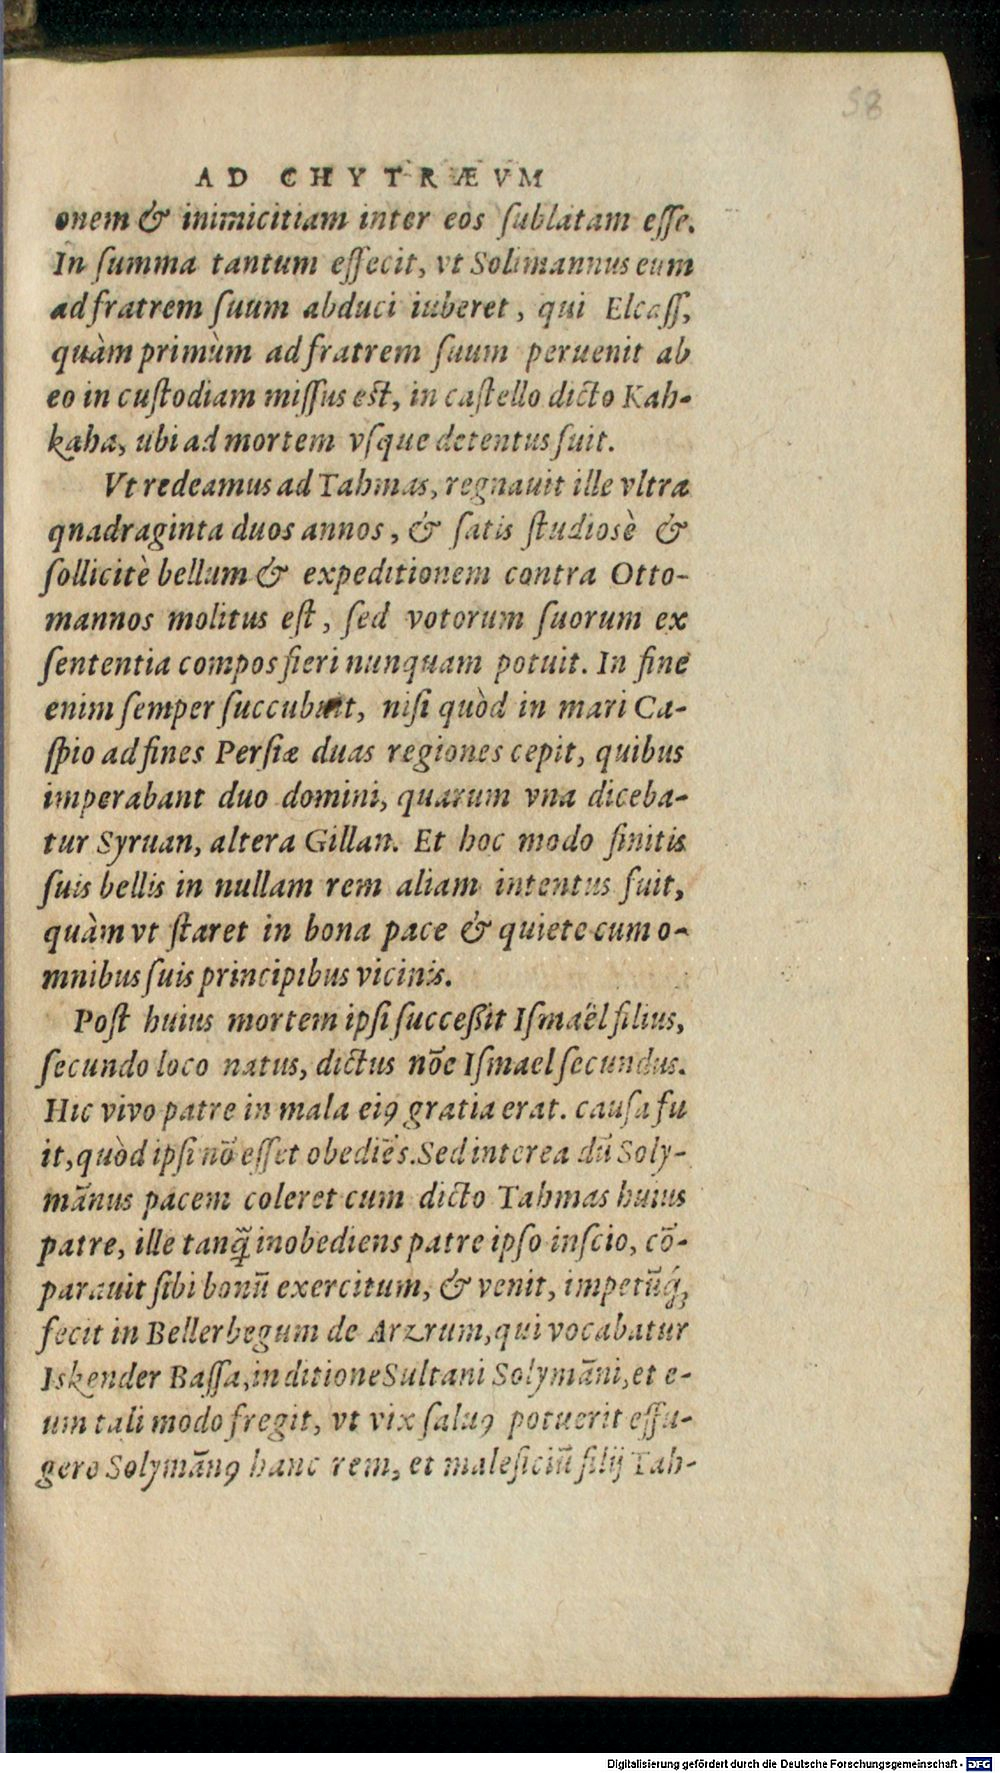 58
AD CHYTRÆVM
onem & inimicitiam inter eos ſublatam eſſe.
In ſumma tantum effecit, vt Solimannus eum
ad fratrem ſuum abduci iuberet, qui Elcaſſ,
quàm primùm ad fratrem ſuum peruenit ab
eo in cuſtodiam miſſus eſt, in caſtello dicto Kah-
kaha, ubi ad mortem vſque detentus fuit.
Vt redeamus ad Tahmas, regnauit ille vltra
qnadraginta duos annos, & ſatis ſtudiosè &
ſollicitè bellum & expeditionem contra Otto-
mannos molitus eſt, ſed votorum ſuorum ex
ſententia compos fieri nunquam potuit. In fine
enim ſemper ſuccubuit, niſi quòd in mari Ca-
ſpio ad fines Perſiæ duas regiones cepit, quibus
imperabant duo domini, quarum vna diceba-
tur Syruan, altera Gillan. Et hoc modo finitis
ſuis bellis in nullam rem aliam intentus fuit,
quàm vt ſtaret in bona pace & quiete cum o-
mnibus ſuis principibus vicinis.
Poſt huius mortem ipſi ſucceßit Iſmaël filius,
ſecundo loco natus, dictus nõe Iſmael ſecundus.
Hic vivo patre in mala eiꝰ gratia erat. cauſa fu
it, quòd ipſi nõ eſſet obediẽs. Sed interea dũ Soly-
mãnus pacem coleret cum dicto Tahmas huius
patre, ille tanq̃ inobediens patre ipſo inſcio, cõ-
parauit ſibi bonũ exercitum, & venit, impetũq́;
fecit in Bellerbegum de Arzrum, qui vocabatur
Iskender Baſſa, in ditione Sultani Solymãni, et e-
um tali modo fregit, vt vix ſaluꝰ potuerit effu-
gere Solymãnꝰ hanc rem, et maleficiũ filij Tah-
Digitalisierung gefördert durch die Deutsche Forschungsgemeinschaft - DFG